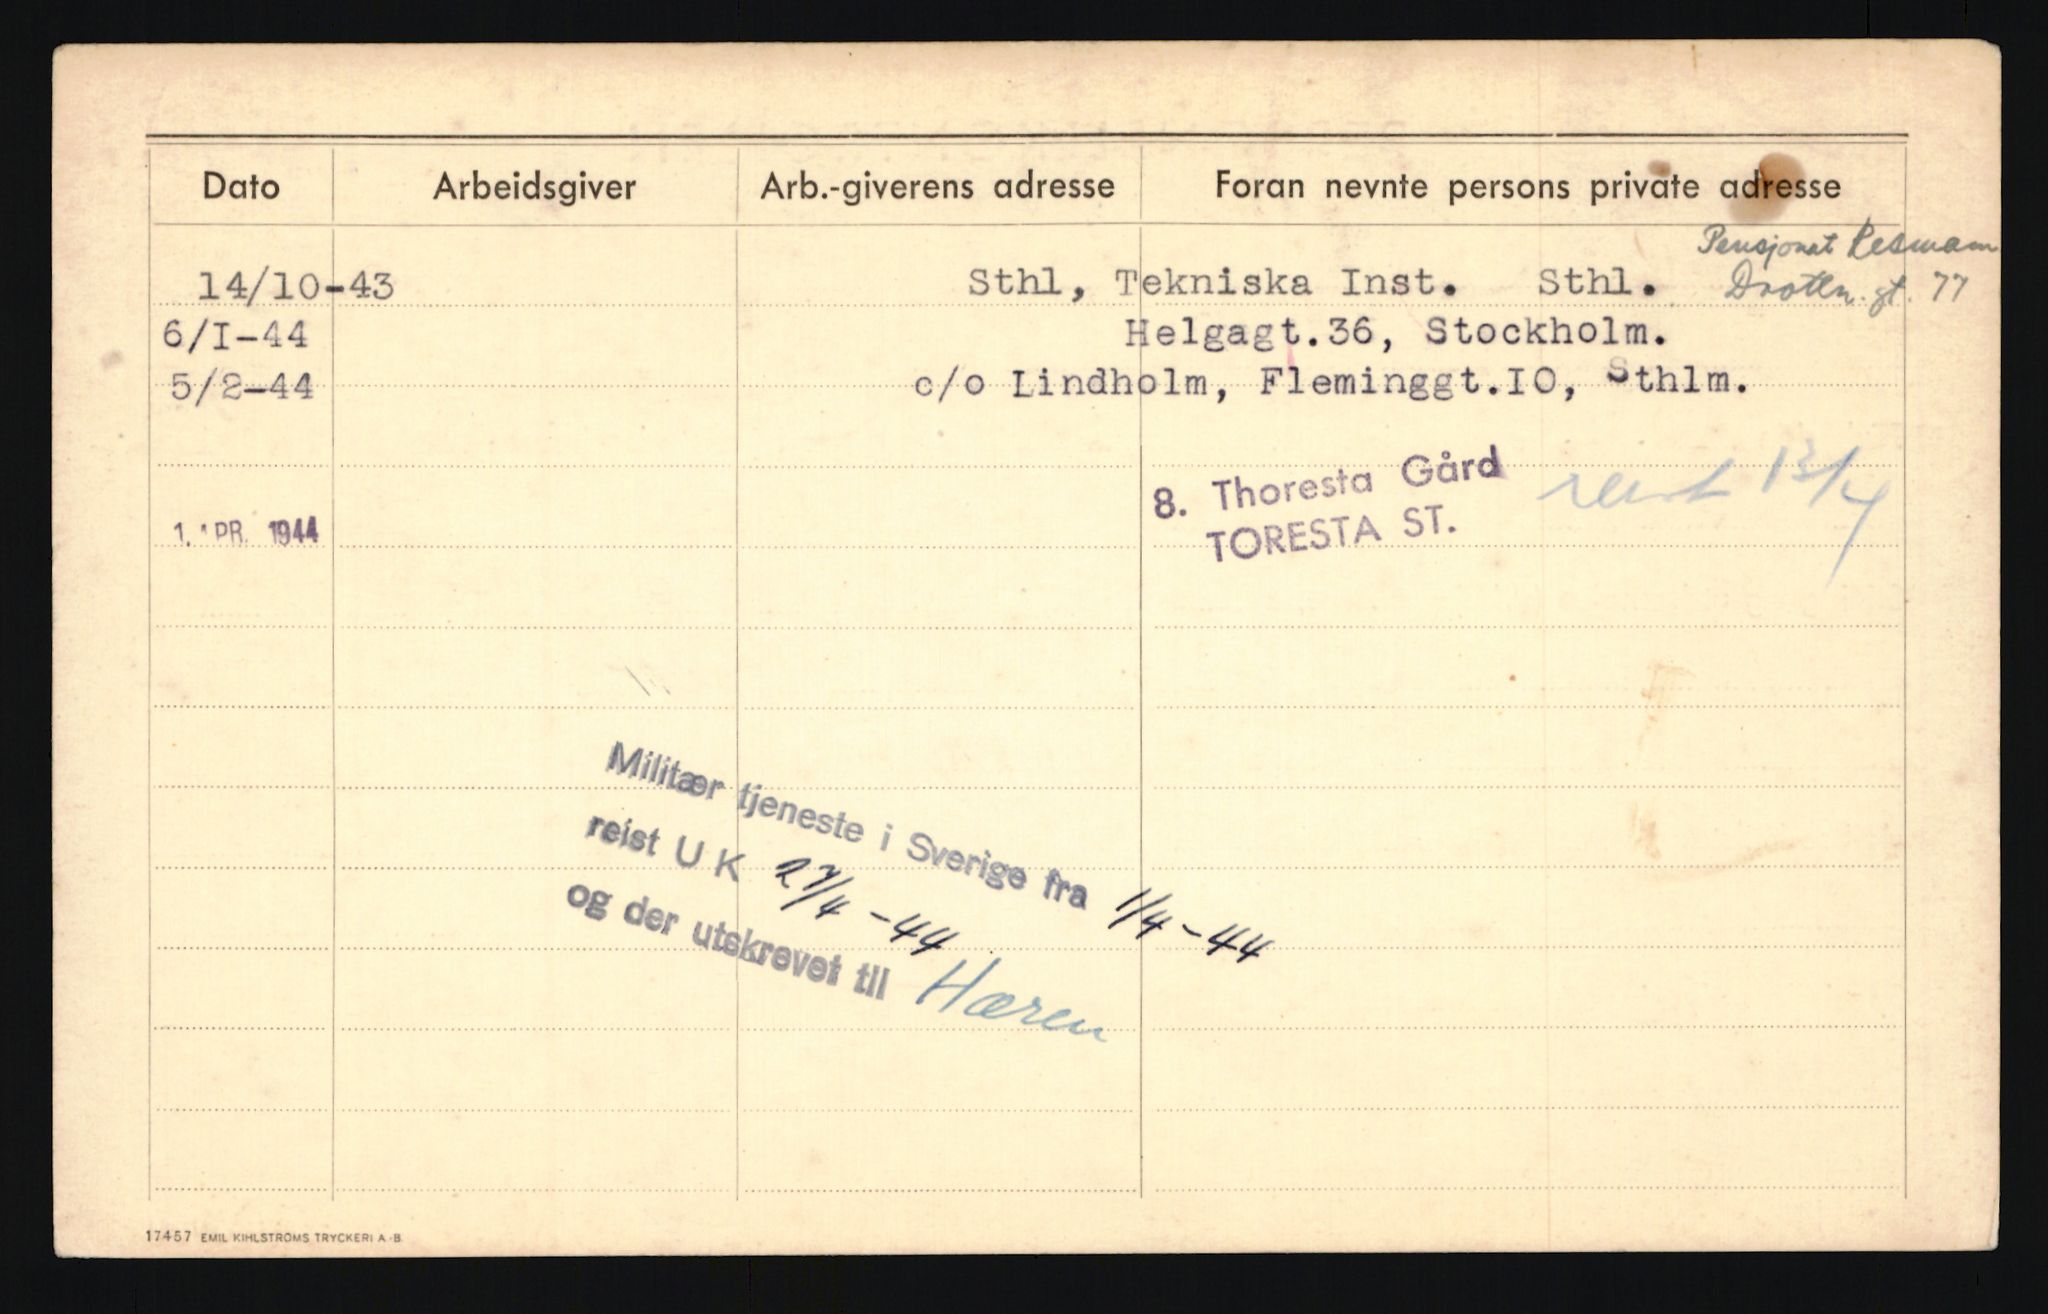 Dato Arbeidsgiver Arb.-giverens adresse Foran nevnte persons private adresse
Pensjonat
14/10-43 Sthl, Tekniska Inst. Sthl. Drottn. gt. 77
6/I-44 Helgagt.36, Stockholm.
5/2-44 c/o Lindholm, Fleminggt.IO, Sthlm.
8. Thoresta Gård reist 13/4
1. APR. 1944 TORESTA ST.
Militær tjeneste i Sverige fra 1/4-44
reist U K 27/4-44
og der utskrevet til Hæren
17457 EMIL KIHLSTRÖMS TRYCKERI A.-B.